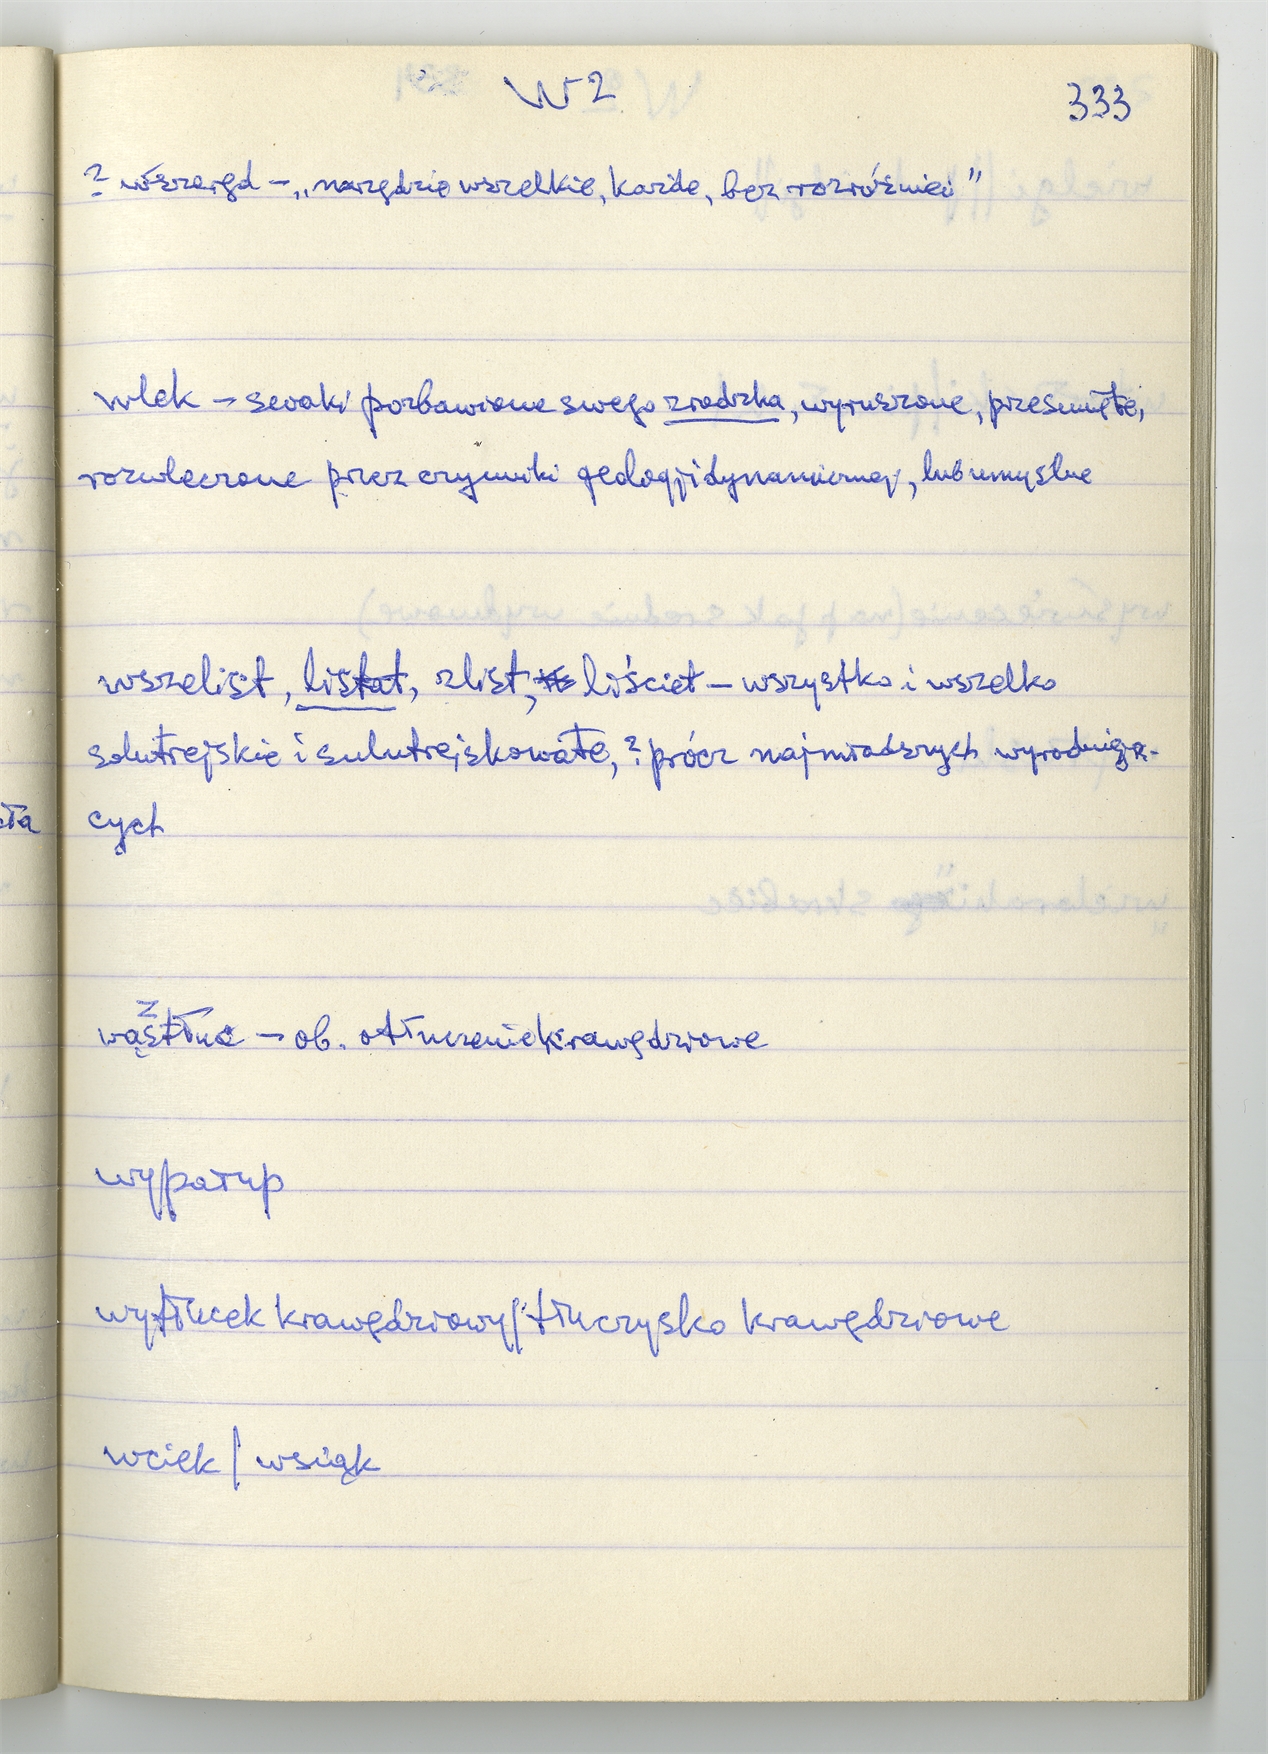 W2
333
? wszeręd – „narzędzie wszelkie, każde, bez rozróżnień”
wlek – sevaki pozbawione swego zrodzka, wyruszone, przesunięte,
rozwleczone przez czynniki geologji dynamicznej, lub umyślne
wszelist, listat, zlist, liściet – wszystko i wszelko
solutrejskie i sulutrejskowate, ? prócz najmłodszych wyrodnieją-
cych
– ob. otłuczenie krawędziowe
wypałup
wytłucek krawędziowy / tłuczysko krawędziowe
wciek / wsiąk